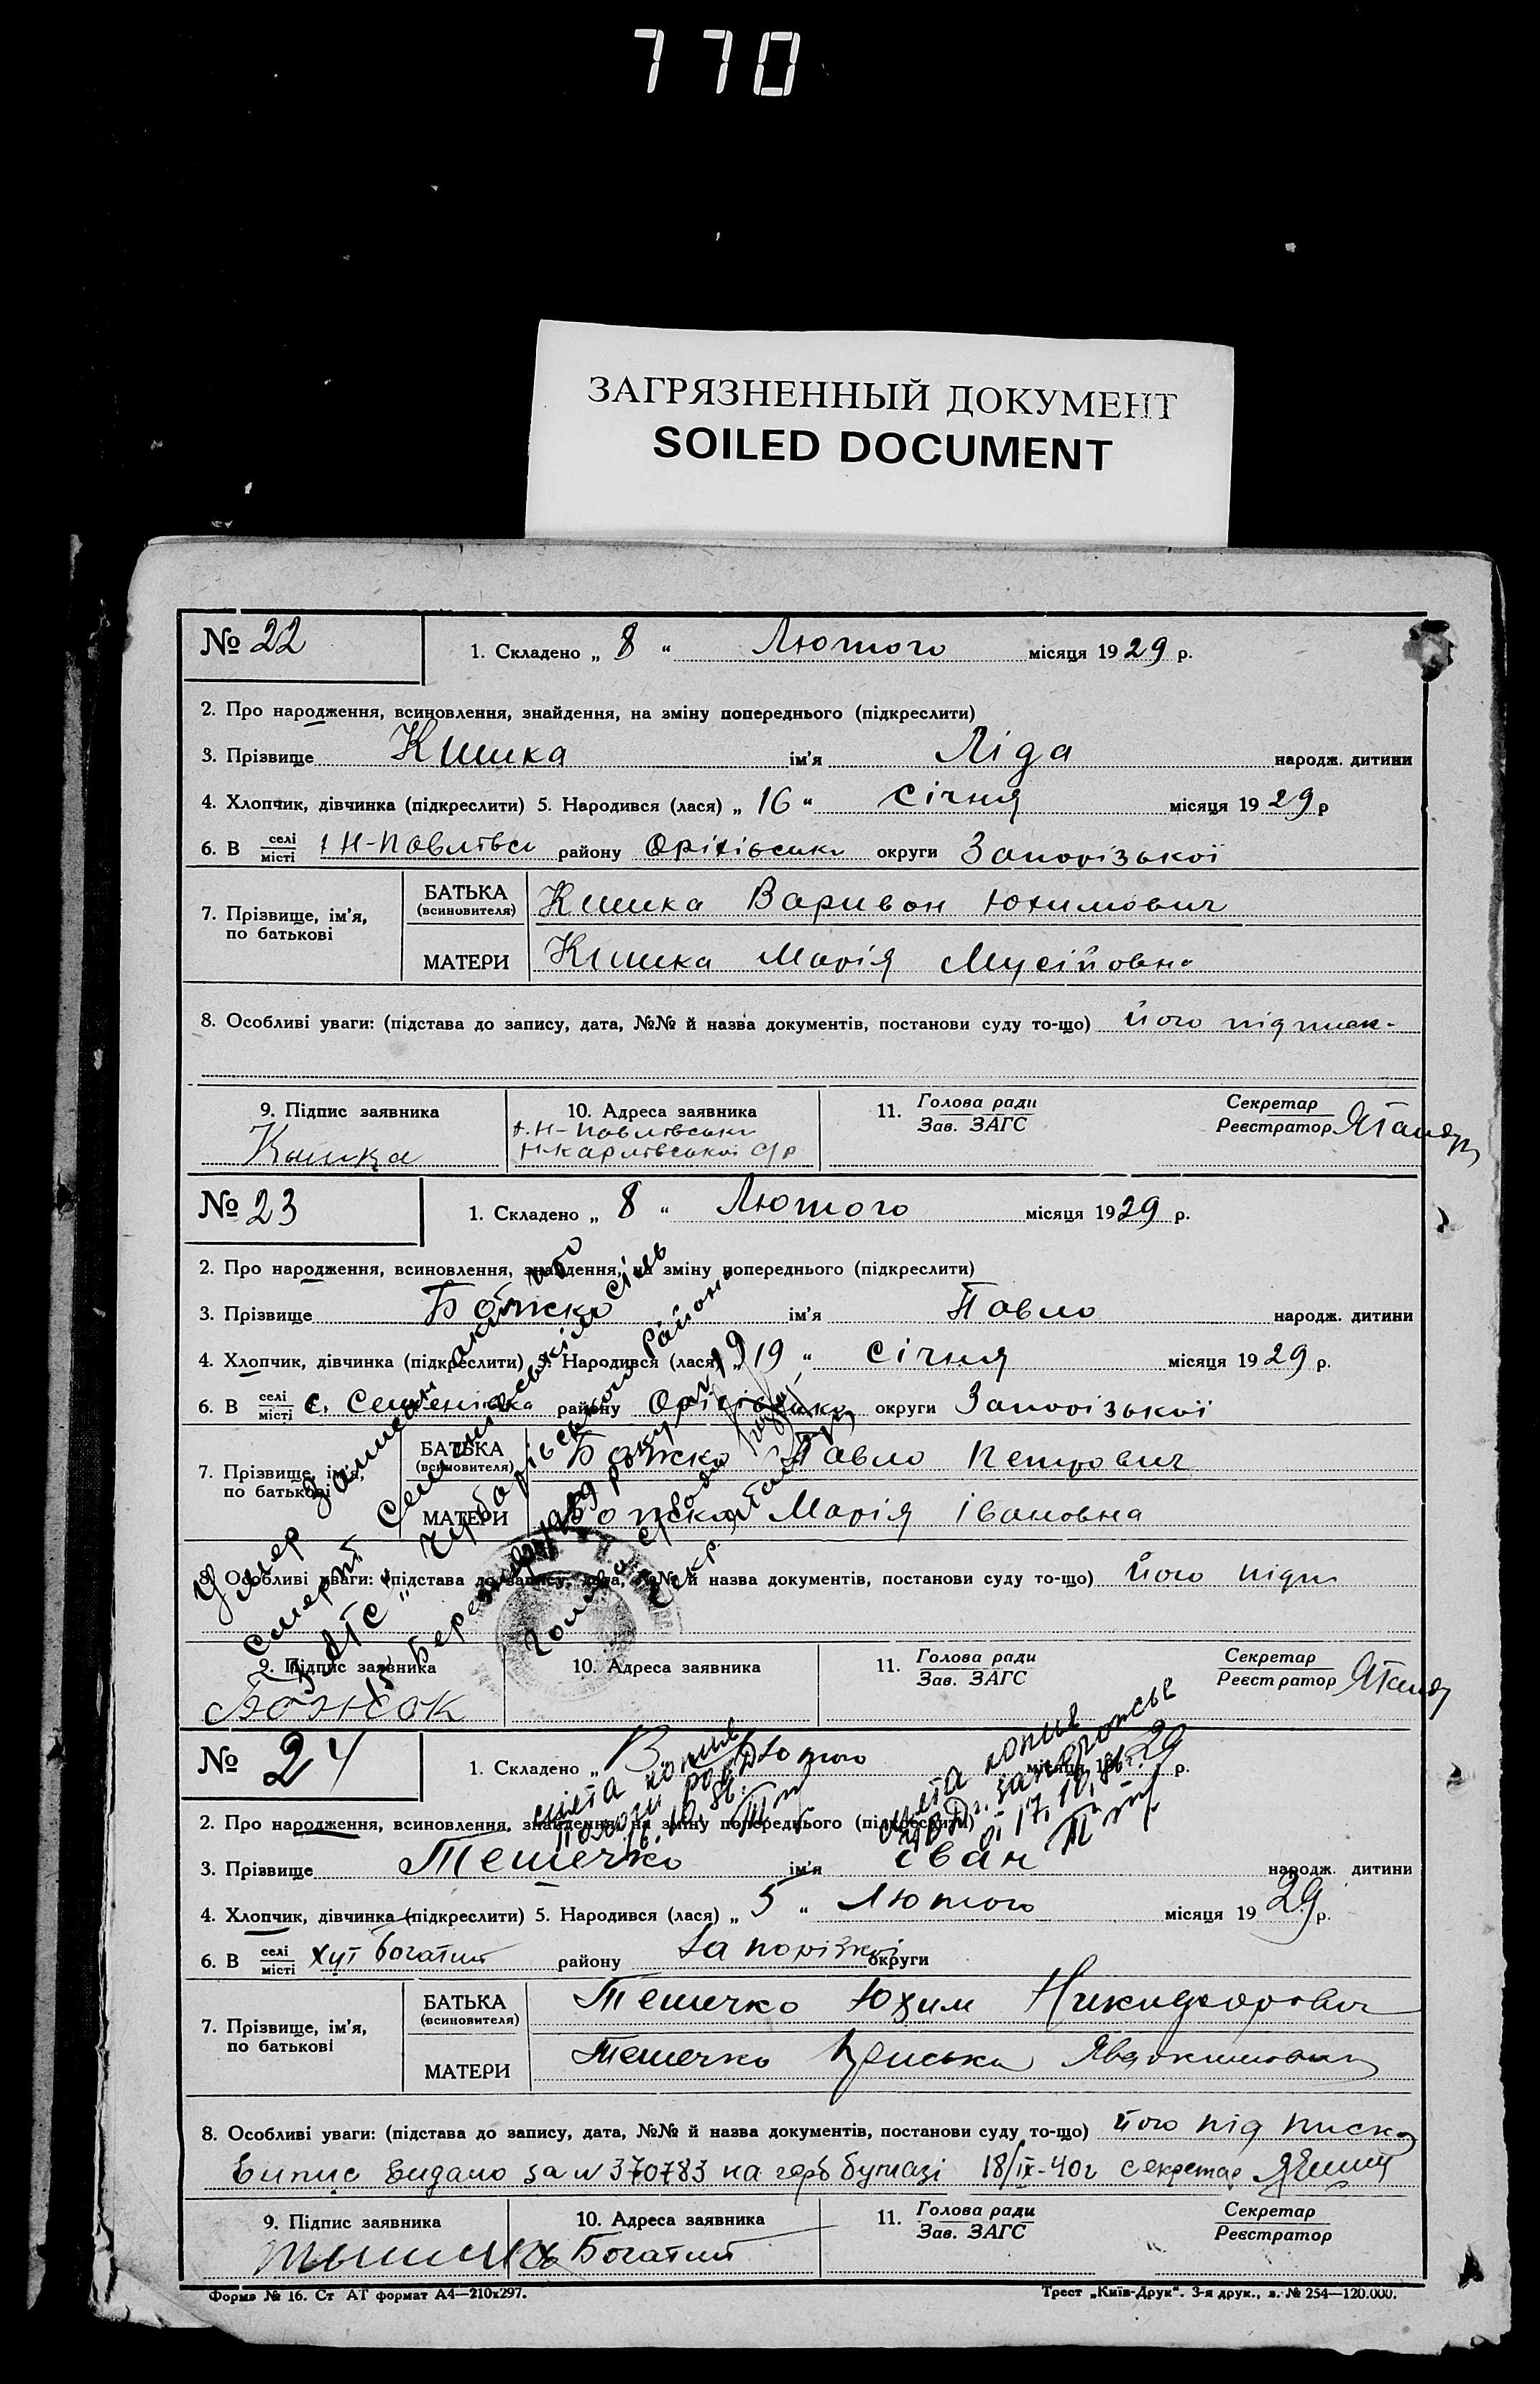 770
ЗАГРЯЗНЕННЫЙ ДОКУМЕНТ
SOILED DOCUMENT
№ 22
1. Складено „ 8 “ Лютого місяця 1929 р.
2. Про народження, всиновлення, знайдення, на зміну попереднього (підкреслити)
3. Прізвище Кишка ім'я Ліда народж. дитини
4. Хлопчик, дівчинка (підкреслити) 5. Народився (лася) „ 16 “ січня місяця 1929 р
6. В селі місті Н-Павлівка району Оріхівськи округи Запорізької
7. Прізвище, ім'я, по батькові
БАТЬКА (всиновителя) Кишка Варивон Юхимович
МАТЕРИ Кишка Марія Мусійовна
8. Особливі уваги: (підстава до запису, дата, №№ й назва документів, постанови суду то-що) його підписк-
9. Підпис заявника
10. Адреса заявника
11. Голова ради Зав. ЗАГС
Секретар Реєстратор
Кишка
Н-Павлівськи
Н-Карлівської с/р
№ 23
1. Складено „ 8 “ Лютого місяця 1929 р.
2. Про народження, всиновлення, знайдення, на зміну попереднього (підкреслити)
3. Прізвище Божско ім'я Павло народж. дитини
4. Хлопчик, дівчинка (підкреслити) 5. Народився (лася) „ 19 “ січня місяця 1929 р.
6. В селі місті с. Семенівка району Оріхівсько округи Запорізької
7. Прізвище, ім'я, по батькові
БАТЬКА (всиновителя) Божско Павло Петрович
МАТЕРИ Божско Марія Івановна
8. Особливі уваги: (підстава до запису, дата, №№ й назва документів, постанови суду то-що) його підп
Умер записан акт
смерті Семенівській сіль
ЗАГС Чубарівського Району
15 Березня 1929 року
Голова с/ради
Секр.
9. Підпис заявника
10. Адреса заявника
11. Голова ради Зав. ЗАГС
Секретар Реєстратор
Божок
№ 24
1. Складено „ 8 Лютого місяця 1929 р.
снята копия
Пологи
16.10.86.
снята копия
г. Запорожье
17.10.86г.
2. Про народження, всиновлення, знайдення, на зміну попереднього (підкреслити)
3. Прізвище Тешечко ім'я Іван народж. дитини
4. Хлопчик, дівчинка (підкреслити) 5. Народився (лася) „ 5 “ Лютого місяця 1929 р.
6. В селі місті хут Богатий району Запорізької округи
7. Прізвище, ім'я, по батькові
БАТЬКА (всиновителя) Тешечко Юхим Никифорович
МАТЕРИ Тешечко Явдокимовна
8. Особливі уваги: (підстава до запису, дата, №№ й назва документів, постанови суду то-що) його підписка
Випис видано за № 370783 на герб бумазі 18/ІХ-40г секретар
9. Підпис заявника
10. Адреса заявника
11. Голова ради Зав. ЗАГС
Секретар Реєстратор
х Богатий
Форма № 16. Ст АТ формат А4—210х297.
Трест „Київ-Друк“. 3-я друк., з. № 254—120.000.